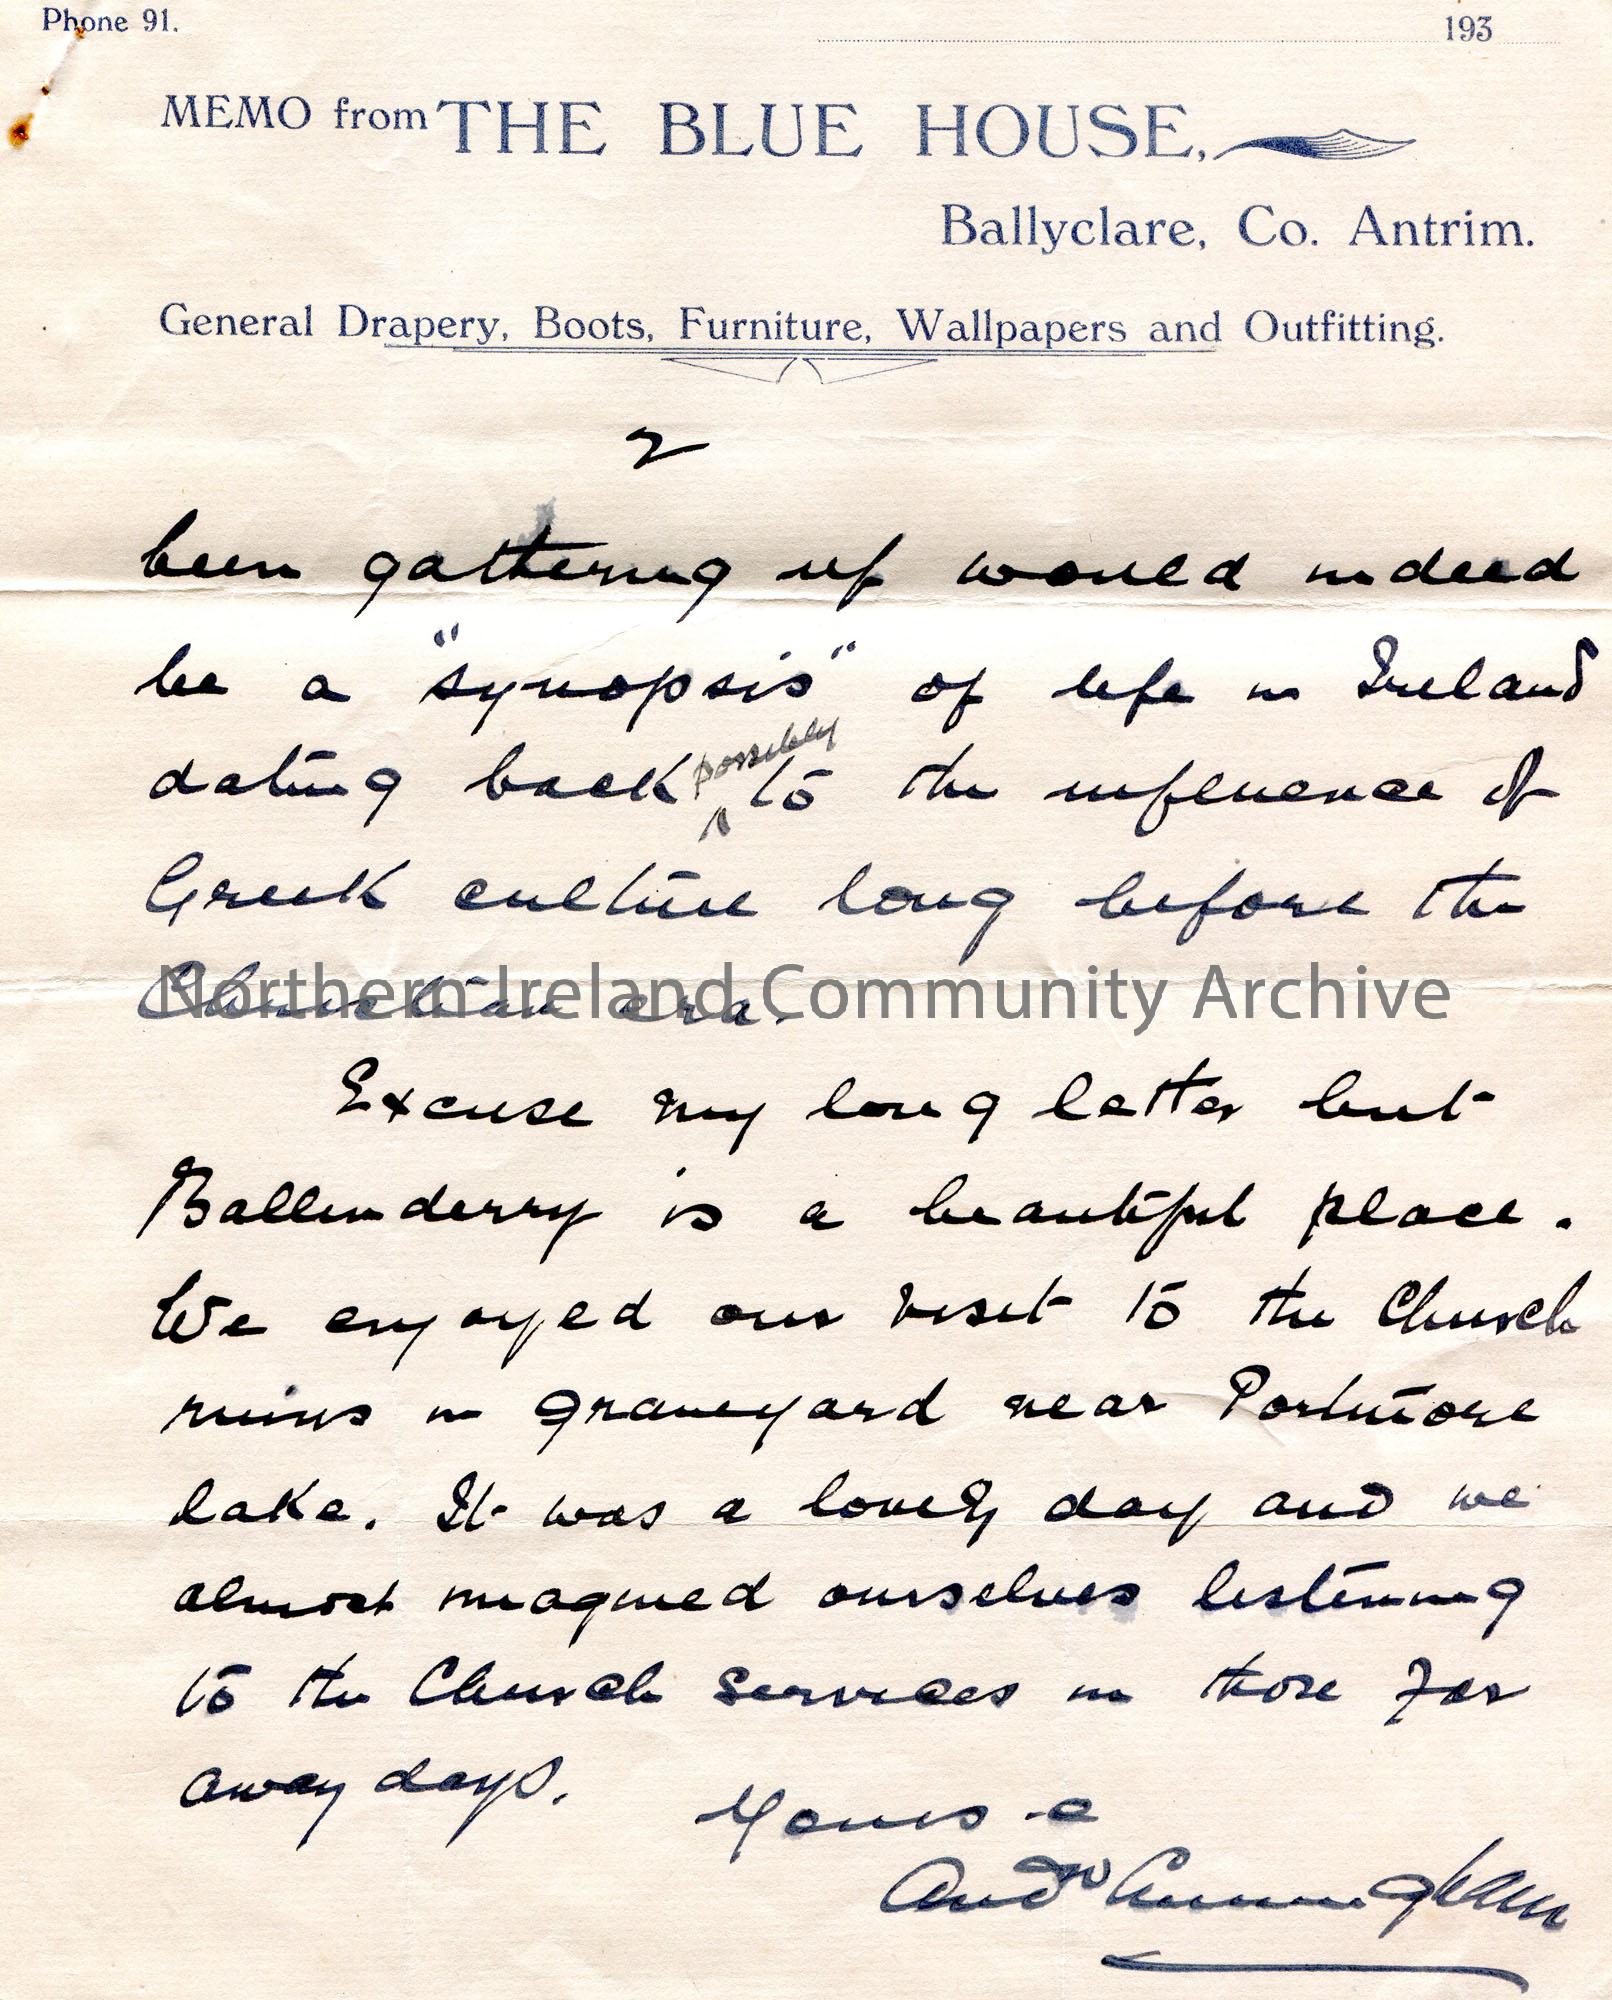 Phone 91.
193
MEMO from THE BLUE HOUSE,
Ballyclare, Co. Antrim.
General Drapery, Boots, Furniture, Wallpapers and Outfitting.
2
been gathering up would indeed
be a "synopsis" of life in Ireland
dating back possibly to the influence of
Greek culture long before the
Christian era.
Northern Ireland Community Archive
Excuse my long letter but
Ballinderry is a beautiful place.
We enjoyed our visit to the Church
ruins in graveyard near Portmore
lake. It was a lovely day and we
almost imagined ourselves listening
to the Church services in those far
away days.
Yours
Andw Cunningham